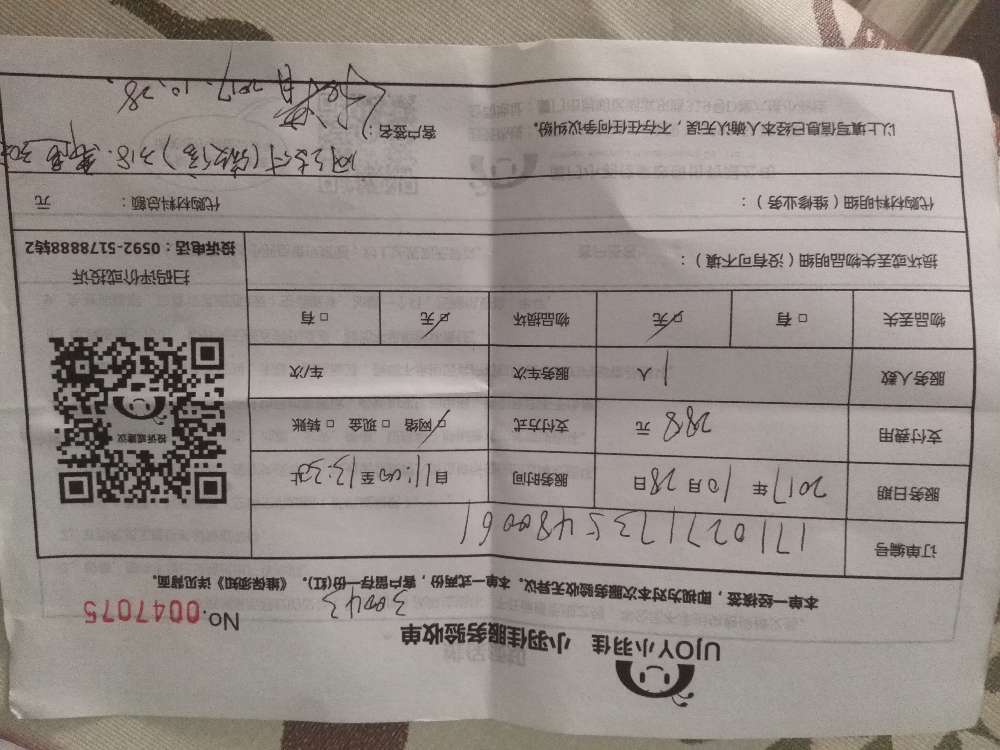 UJOY小羽佳 小羽佳服务验收单
No.0047075
30043
本单一经接签，即视为对本次服务验收无异议。本单一式两份，客户留存一份(红)。《维保须知》详见背面。
订单编号 171027173548006​1
服务日期 2017年10月28日 服务时间 自11:00至13:30止
支付费用 288元 支付方式 ☑网络 □现金 □转账
服务人数 1人 服务车次 车/次
物品丢失 □有 ☑无 物品损坏 ☑无 □有
投诉或建议
扫码评价或投诉
投诉电话：0592-5178888转2
损坏或丢失物品明细（没有可不填）：
代购材料明细（维修业务）： 代购材料总额： 元
以上填写信息已经本人确认无误，不存在任何争议纠纷。
客户签名：
2017.10.28.